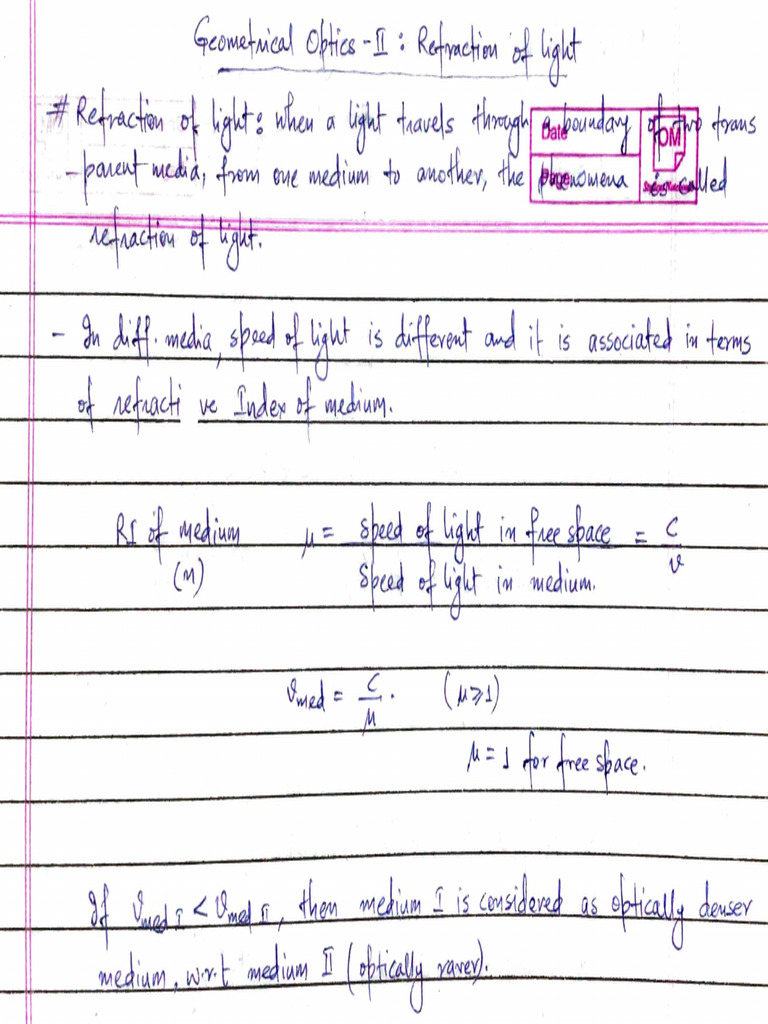 Geometrical Optics - II : Refraction of light
# Refraction of light: when a light travels through a boundary of two trans
- parent media, from one medium to another, the phenomena is called
refraction of light.
Date
Page
OM
- In diff. media, speed of light is different and it is associated in terms
of refracti ve Index of medium.
RI of medium μ = Speed of light in free space = C
(μ) Speed of light in medium. v
v med = C . (μ ≥ 1)
μ
μ = 1 for free space.
If v med I < v med II, then medium I is considered as optically denser
medium, w.r.t medium II (optically rarer).